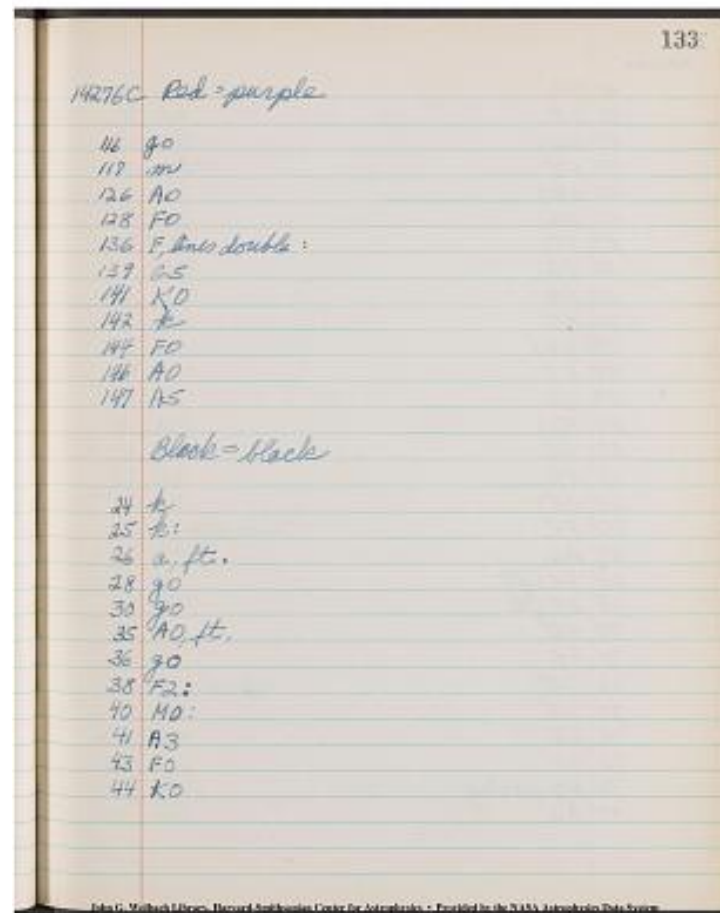 133
14276C Red = purple
116 g0
118 m
126 A0
128 F0
136 F, lines double :
139 G5
141 K0
142 k
144 F0
146 A0
147 A5
Black = black
24 k
25 k:
26 a, ft.
28 g0
30 g0
35 A0, ft.
36 g0
38 F2:
40 M0:
41 A3
43 F0
44 K0
John G. Wolbach Library, Harvard-Smithsonian Center for Astrophysics • Provided by the NASA Astrophysics Data System